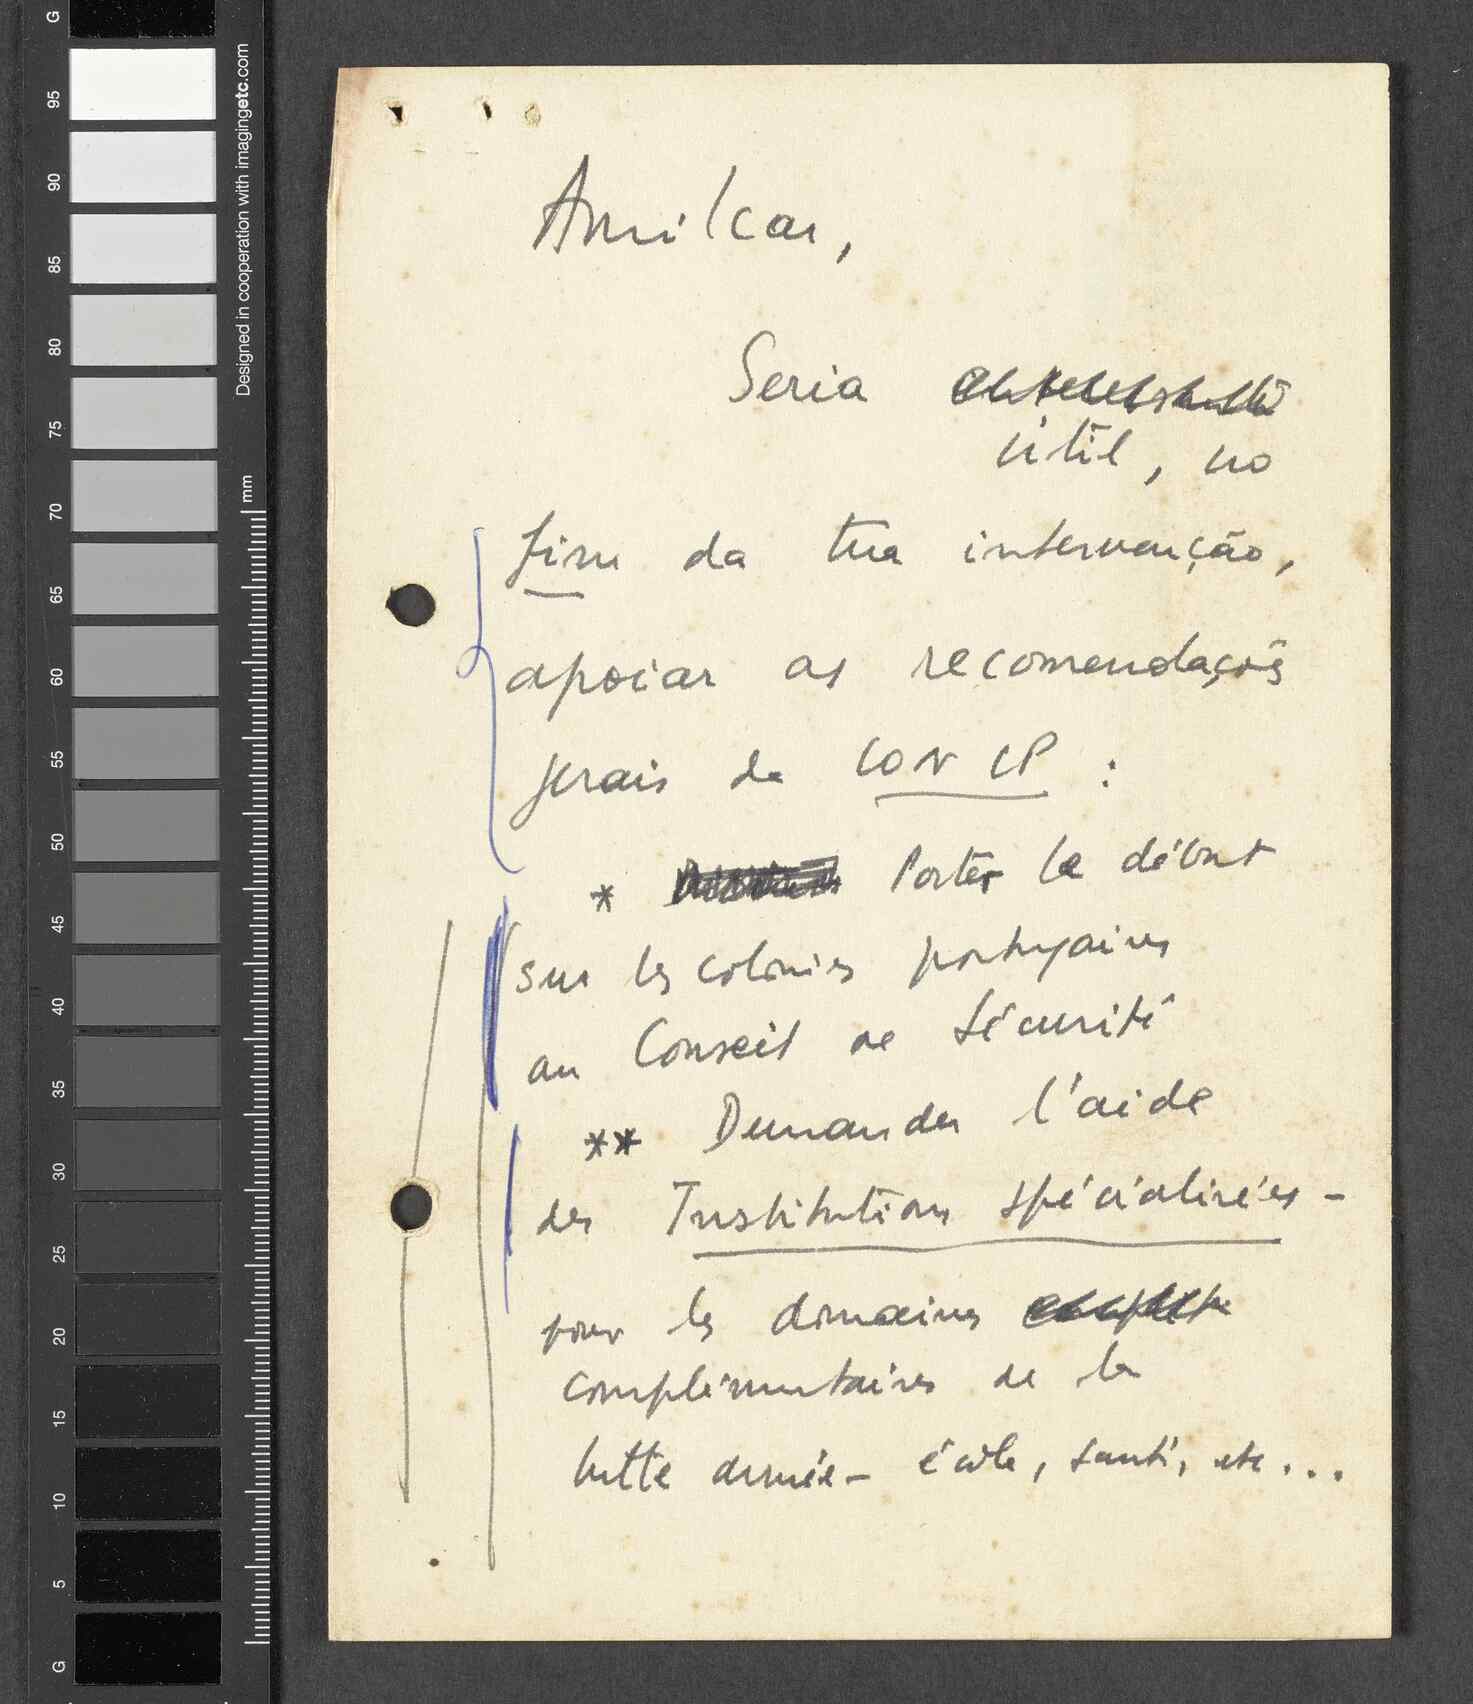 G
95
90
85
80
75
70
65
60
55
50
45
40
35
30
25
20
15
10
5
G
Designed in cooperation with imagingetc.com
mm
Amilcar,
Seria
útil, no
fim da tua intervenção,
apoiar as recomendações
gerais da CONCP :
* Porter le débat
sur les colonies portugaises
au Conseil de Sécurité
** Demander l'aide
des Institutions spécialisées -
pour les domaines
complémentaires de la
lutte armée - école, santé, etc...